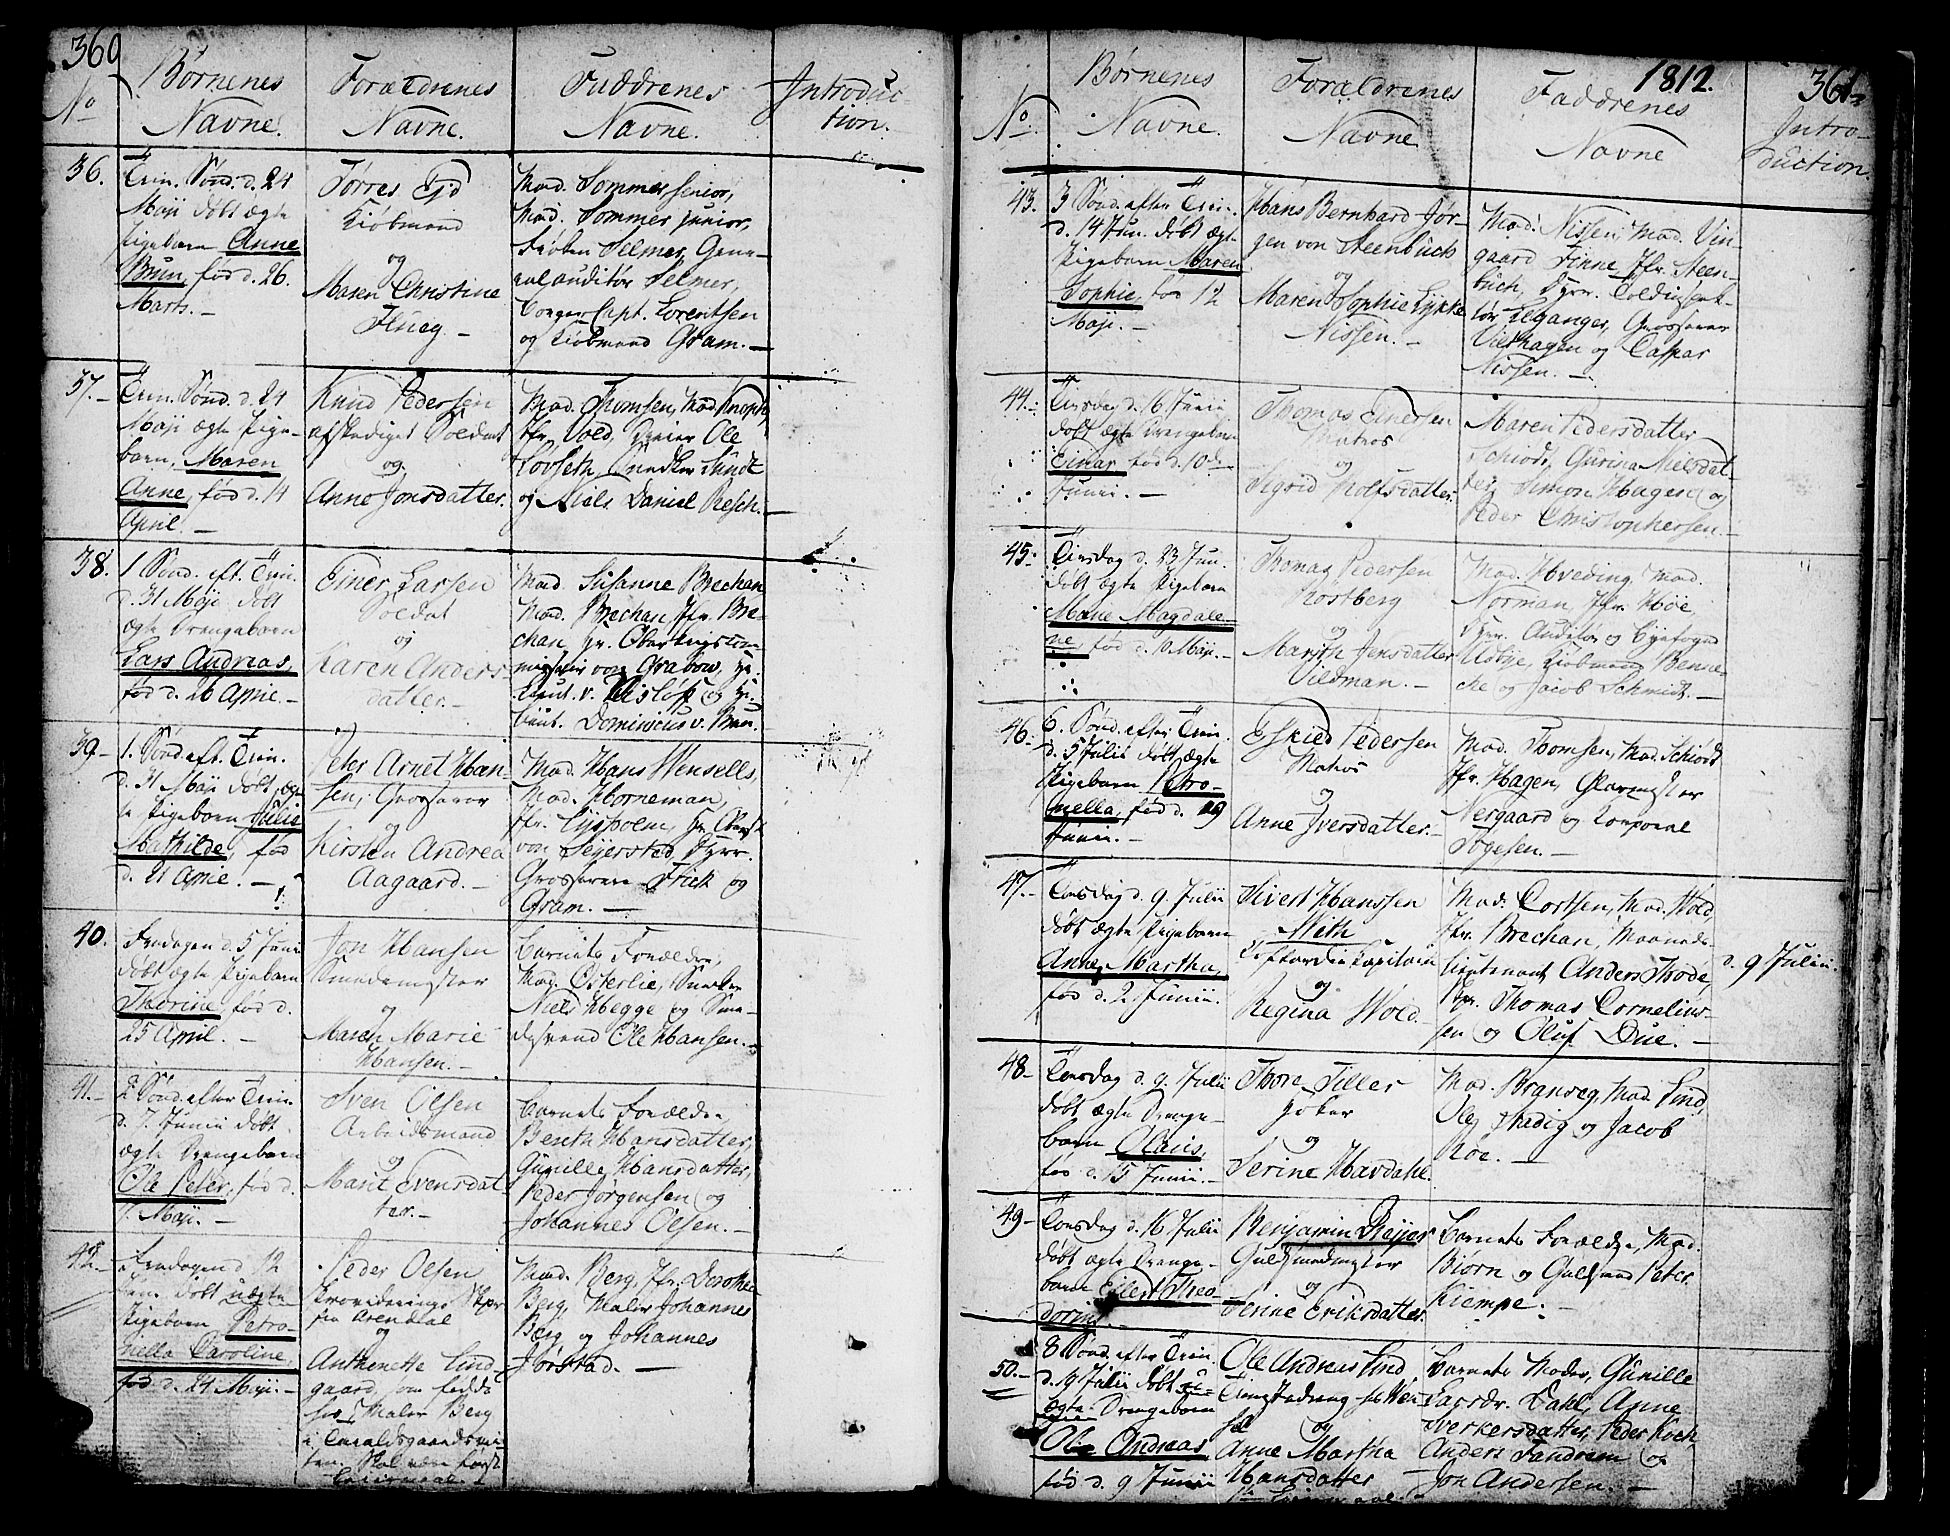 360
No
Børnenes
Navne.
Forældrenes
Navne.
Faddrenes
Navne.
Introduc-
tion.
36.
Trin. Sønd. d. 24
Maji døbt ægte
Pigebarn Anne
Brun, fød d. 26.
Marts. –
Tørres
Kiøbmand
og
Maren Christine
Flueg. –
Mad. Sommer senior,
Mad. Sommer junior,
Frøken Selmer, Gene-
ralauditør Selmer,
Borger Capt. Lorentsen
og Kiøbmand Gram. –
37. –
Trin. Sønd. d. 24
Maji ægte Pige-
barn, Maren
Anne, fød d. 14
April. –
Knud Pedersen
afskediget Soldat
og
Anne Jonsdatter.
Mad. Thomsen, Mad. Knoph,
Jfr. Vold, Ole
Løvseth, Snedker Sundt
og Niels Daniel Resch. –
38.
1 Sønd. eft. Trin.
d. 31 Maji døbt
ægte Drengebarn
Lars Andreas,
fød d. 26 April. –
Einer Larsen
Soldat
og
Karen Anders-
datter. –
Mad. Susanne Brechan
Mad. Brechan, Jfr. Bre-
chan, Hr. Oberkrigscom-
missair von Grabow, Hr.
Lieut. v. og Hr.
Lieut. Dominicus v. Brun.
39 –
1. Sønd. eft. Trin.
d. 31 Maji døbt æg-
te Pigebarn Julie
Mathilde, fød
d. 21 April. –
Peter Arnet Han-
sen, Grosserer
og
Kirsten Andrea
Aagaard. –
Mad. Hans Wensells,
Mad. Horneman,
Jfr. Lysholm, Hr. Oberst
von Sejersted, Hrr.
Grosserere Frich og
Gram. –
40.
Fredagen d. 5 Junii
døbt ægte Pigebarn
Thorine, fød d.
25 April. –
Jon Hansen
Smedemester
og
Maren Marie
Hansen. –
Barnets Forældre,
Mad. Østerlie, Snedker
Niels Hegge og Sme-
desvend Ole Hansen. –
41. –
2 Sønd. efter Trin.
d. 7. Junii døbt
ægte Drengebarn
Ole Peter, fød d.
7. Maji. –
Sven Olsen
Arbeidsmand
og
Marit Svensdat-
ter. –
Barnets Forældre
Bereth Hansdatter,
Gunille Hansdatter,
Peder Jørgensen og
Johannes Olsen. –
42. –
Fredagen d. 12
Junii døbt uægte
Pigebarn Petro-
nella Caroline,
fød d. 24 Maji. –
Peder Olsen
Provideerings Skpr
fra Arendal
og
Anthenette Lind-
gaard, som
hos Maler Berg
i
Skal være første
Mad. Berg, Jfr. Dorothe
Berg, Maler Johannes
Berg og Johannes
Hørstad. –
1812.
361
No
Børnenes
Navne.
Forældrenes
Navne
Faddrenes
Navne
Intro-
duction.
43.
3 Sønd. efter Trin.
d. 14 Jun. døbt ægte
Pigebarn Maren
Sophie, fød 12
Maji. –
Hans Bernhard Jør-
gen von Steenbuch
og
Maren Sophie Lykke
Nissen. –
Mad. Nissen, Mad. Vin-
gaard Finne, Jfr. Steen-
buch, Hrr.
Leganger, Grosserer
Vielhagen og Caspar
Nissen. –
44.
Tirsdag d. 16. Junii
døbt ægte Drengebarn
Einar, fød d. 10de
Junii. –
Thomas Einersen
Matros
og
Sigrid Rolfsdatter.
Maren Pedersdatter
Schiødt, Gurina Nielsdat-
ter, Simon Hagen og
Peder Christophersen. –
45.
Tirsdag d. 23 Jun.
døbt ægte Pigebarn
Marie Magdale-
ne, fød d. 10 Maji. –
Thomas Pedersen
Rostberg
og
Marith Jensdatter
Vildman. –
Mad. Hveding, Mad.
Norman, Jfr. Høe,
Hrr. Auditør og Byefoged
Asbye, Kiøbmand Benne-
che og Jacob Schmidt. –
46. –
6. Sønd. efter Trin.
d. 5 Julii døbt ægte
Pigebarn Petro-
nella, fød d. 19
Junii. –
Eskild Pedersen
Matros
og
Anne Iversdatter. –
Mad. Thomsen, Mad. Schiødt
Jfr. Hagen, Glarmester
Nergaard og Korporal
Togesen. –
47. –
Torsdag d. 9. Julii
døbt ægte Pigebarn
Anne Martha,
fød d. 2. Junii. –
Sivert Hanssen
With
Coffardie Kapitain
og
Regina Wold –
Mad. Cortsen, Mad. Wold,
Jfr. Brechan, Maaneds-
lieutenant Anders Thode,
Skpr. Thomas Cornelius-
sen og Oluf Due. –
d. 9 Julii.
48. –
Torsdag d. 9. Julii
døbt ægte Drenge-
barn Olaus,
fød d. 15 Junii. –
Thore Tiller
Høker
og
Serine Havdahl.
Mad. Branveg, Mad. Lind,
Ole Stadig og Jacob
Roe. –
49 –
Torsdag d. 16 Julii
døbt ægte Drenge-
barn Eilert Theo-
dorius
Benjamin Dreyer
Guldsmedmester
og
Serine Eriksdatter.
Barnets Forældre, Mad.
Biørn og Guldsmed Peter
Kiempe. –
50. –
8 Sønd. efter Trin.
d. 19 Julii døbt u-
ægte Drengebarn
Ole Andreas,
fød d. 9 Junii
Ole Andreas Lind
og
Anne Martha
Hansdatter
Barnets Moder, Gunille
Larsdr. Dahl, Anne
Sverkersdatter, Peder Koch
Anders Tandrem og
Jon Andersen. –